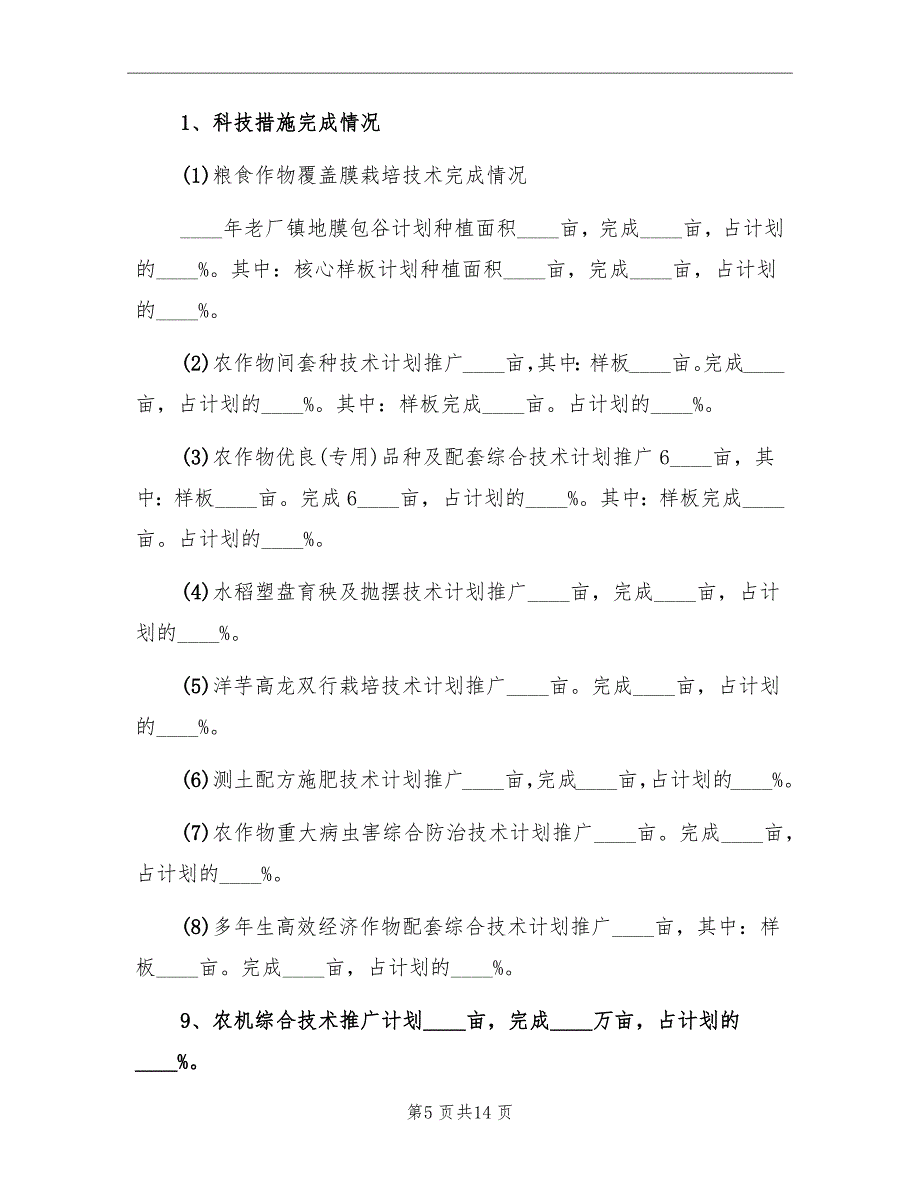 1、科技措施完成情况
(1)粮食作物覆盖膜栽培技术完成情况
____年老厂镇地膜包谷计划种植面积____亩，完成____亩，占计划
的____%。其中：核心样板计划种植面积____亩，完成____亩，占计划
的____%。
(2)农作物间套种技术计划推广____亩，其中：样板____亩。完成____
亩，占计划的____%。其中：样板完成____亩。占计划的____%。
(3)农作物优良(专用)品种及配套综合技术计划推广 6____亩，其
中：样板____亩。完成 6____亩，占计划的____%。其中：样板完成____
亩。占计划的____%。
(4)水稻塑盘育秧及抛摆技术计划推广____亩，完成____亩，占计
划的____%。
(5)洋芋高龙双行栽培技术计划推广____亩。完成____亩，占计划
的____%。
(6)测土配方施肥技术计划推广____亩，完成____亩，占计划的____%。
(7)农作物重大病虫害综合防治技术计划推广____亩。完成____亩，
占计划的____%。
(8)多年生高效经济作物配套综合技术计划推广____亩，其中：样
板____亩。完成____亩，占计划的____%。
9、农机综合技术推广计划____亩，完成____万亩，占计划的
____%。
第5 页共14 页